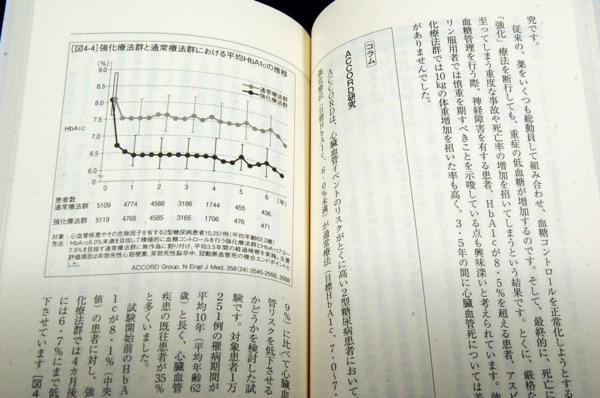 究です。
従来の、薬をいくつも総動員して組み合わせ、血糖コントロールを正常化しようとする
「強化」療法を断行しても、重症の低血糖が増加するのです。そして、最終的に、死亡に
至ってしまう重度な事故や死亡率の増加を招いてしまうという結果です。とくに、厳格な
血糖管理を行う際、神経障害を有する患者、HbA1cが8・5%を超える患者、アスピ
リン服用者では慎重を期すべきことを示唆している点も興味深いと考えられています。強
化療法群では10kgの体重増加を招いた率も高く、3・5年の間に心血管死については差
がありませんでした。
コラム
ACCORD研究
ACCORDは、心臓血管イベントのリスクがとくに高い2型糖尿病患者において、
強化療法(目標HbA1c、6・0%未満)が通常療法(目標HbA1c、7・0〜7・
[図4-4]強化療法群と通常療法群における平均HbA1cの推移
(%)
通常療法群
強化療法群
9.0
8.5
8.0
7.5
HbA1c
7.0
6.5
6.0
0 1 2 3 4 5 6 (年)
患者数
通常療法群 5109 4774 4588 3186 1744 455 436
強化療法群 5119 4768 4585 3165 1706 476 471
対象:心血管疾患やその危険因子を有する2型糖尿病患者10,251例(平均年齢62.2歳)
方法:HbA1c6.0%未満を目指して積極的に血糖コントロールを行う強化療法群とHbA1c7.0〜
7.9%を目指す通常療法群に無作為に割り付け、平均3.5年間の経過観察を実施。主要
評価項目は非致死性心筋梗塞、非致死性脳卒中、冠動脈血管死の複合エンドポイントと
した。
ACCORD Group, N Engl J Med. 358(24):2545-2559, 2008
9%)に比べて心臓血
管リスクを低下させる
かどうかを検討した試
験です。対象患者1万
251例の罹病期間が
平均10年(平均年齢62
歳)と長く、心臓血管
疾患の既往患者が35%
と多くいました。
試験開始前のHbA
1cが8・1%(中央
値)の患者に対し、強
化療法群では4カ月後
には6・7%にまで低
下させています(図4